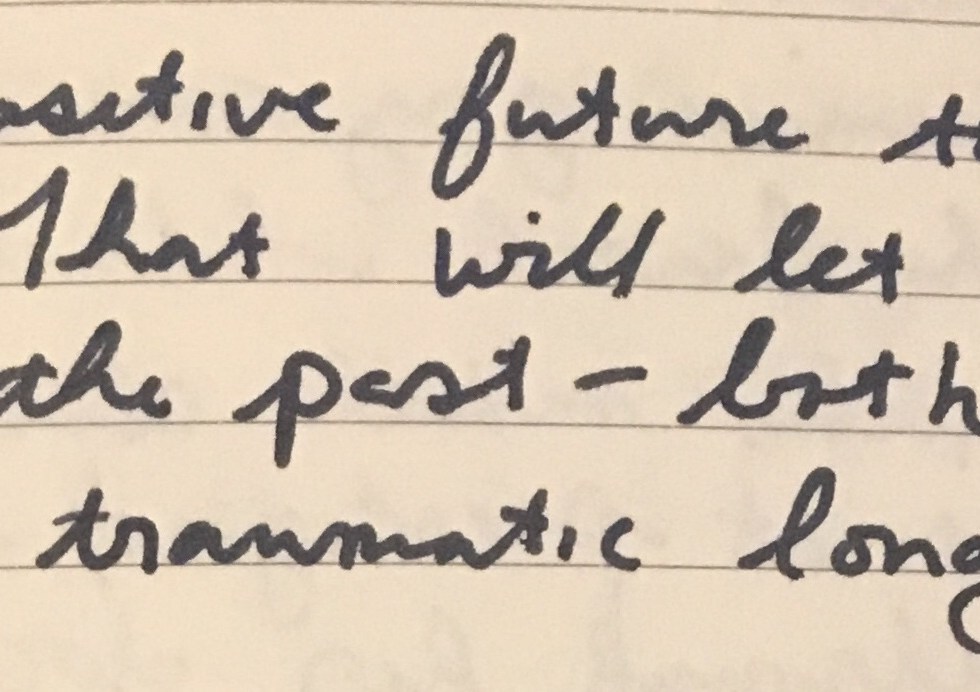 ositive future t
That will let
the past – both
traumatic long